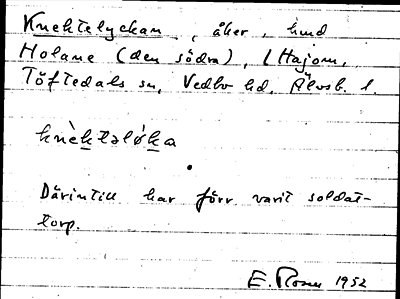 Knektelyckan, åker, hmd
Holane (den södra), (Hajom,
Töftedals sn, Vedbo hd, Älvsb. l.
knèktəlø̀ka
Därintill har förr varit soldat-
torp.
E. 1952